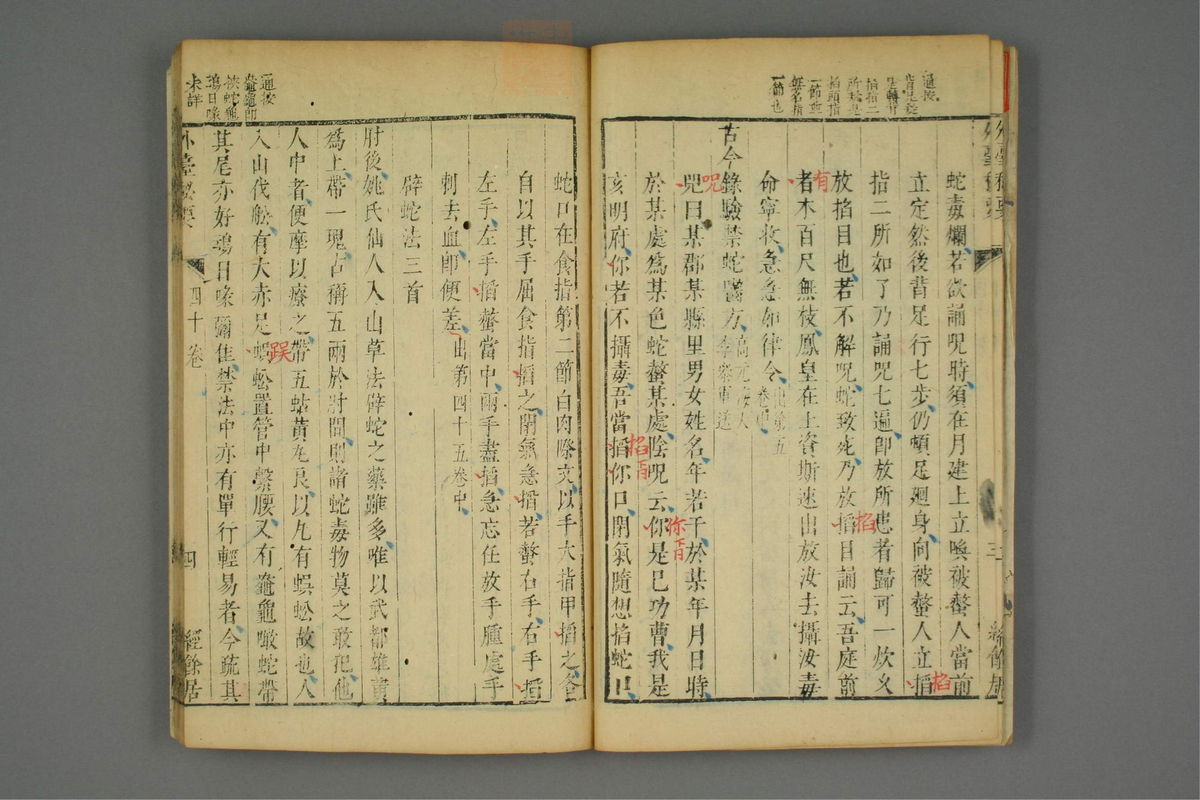 蛇毒爛若欲誦呪時須在月建上立喚被螫人當前
立定然後背足行七步仍頓足廻身向被螫人立搯
指二所如了乃誦呪七遍卽放所患者歸可一炊乆
放搯目也若不解呪蛇致死乃放搯目誦云吾庭前
者木百尺無枝鳳皇在上資斯速出放汝去攝汝毒
命寧收急急如律令出第五卷中
古今錄驗禁蛇螫方
呪曰某郡某縣里男女姓名年若干於某年月日時
於某處爲某色蛇螫某處陰呪云你是巳功曹我是
亥明府你若不攝毒吾當搯你口閉氣隨想掐蛇口
蛇口在食指第二節白肉際文以手大指甲搯之食
自以其手屈食指搯之閉氣急搯若螫右手右手搯
左手左手搯螫當中兩手盡搯急忘任放手腫處手
刺去血卽便差出第四十五卷中
辟蛇法三首
肘後姚氏仙人入山草法辟蛇之藥雖多唯以武都雄黃
爲上帶一塊古稱五兩於肘間則諸蛇毒物莫之敢犯他
人中者便摩以療之帶五蛄黃丸良以丸有蜈蚣故也人
入山伐船有大赤足蜈蚣置管中繫腰又有鼇龜噉蛇帶
其尾亦好鴆日喙彌佳禁法中亦有單行輕易者今疏其
外臺秘要
四十卷
四
經餘居
通按
所
搯頭指
一節
無名指
一節也
通按
鼇龜卽
鴆日喙
未詳
有
掐
掐
呪
你下日
掐
誤